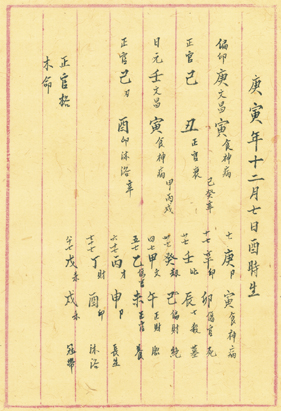 庚寅年十二月七日酉時生
偏印 庚 文昌 寅 食神病
正官 己 丑 正官衰 己癸辛
日元 壬 文昌 寅 食神病 甲丙戊
正官 己 酉 印沐浴 辛
正官格
木命
七 庚卩 寅 食神病
十七 辛印 卯 傷官死
廿七 壬比 辰 七殺墓
癸 巳 偏財絕
四七 甲文 午 正財胎
五七 乙傷官 未 正官養
六七 丙才 申卩 長生
七七 丁財 酉印 沐浴
八七 戊杀 戌杀 冠帶